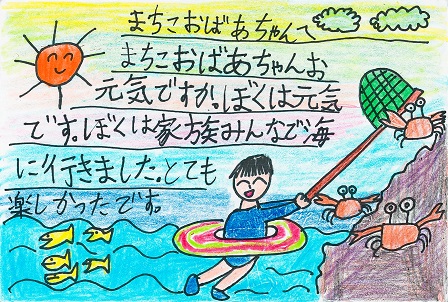 まちこおばあちゃんへ
まちこおばあちゃんお
元気ですか。ぼくは元気
です。ぼくは家族みんなで海
に行きました。とても
楽しかったです。